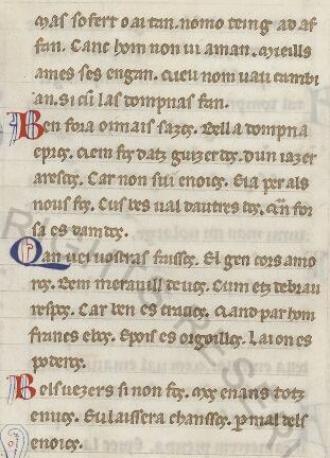 mas sofert o ai tan. nomo teing ad af
fan. Canc hom non ui aman. Mieills
ames ses engan. cieu nom uau cambi
an. si cū las dompnas fan.
Ben fora oimais sazos. Bella dompna
e pros. Qem fos datz guizerdos. dun iazer
a rescos. Car non sui enoios. Sia per als
nous fos. Cus bes ual dautres dos. qān for
sa es dam dos.
Qan uei uostras faissos. El gen cors amo
ros. Bem merauill de uos. Cum etz de brau
respos. Car ben es tracios. Qand par hom
francs e bos. Epois es orgoillos. Lai on es
poderos.
Bels uezers si non fos. mos enans totz
en uos. Eu laissera chanssos. p mal dels
enoios.
RIGHTS RESE